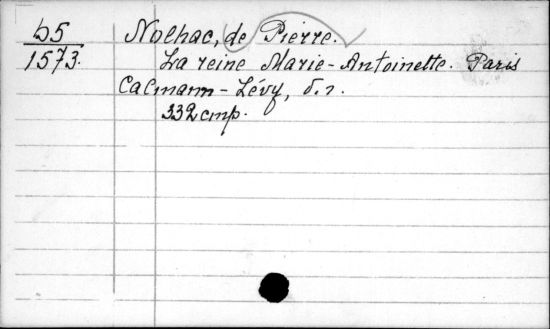 Ъ5
1573.
Nolhac, de Pierre.
La reine Marie-Antoinette. Paris
Calmann-Lévy, б. г.
332 стр.